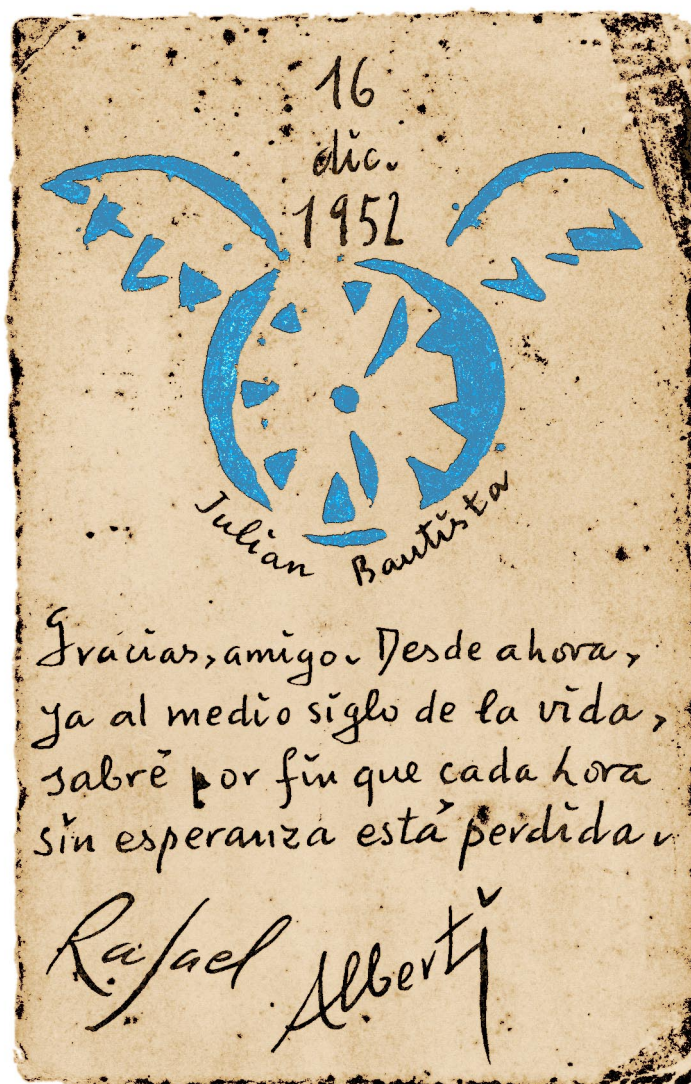 16
dic.
1952
Julian Bautista
Gracias, amigo. Desde ahora,
ya al medio siglo de la vida,
sabré por fin que cada hora
sin esperanza está perdida.
Rafael Alberti